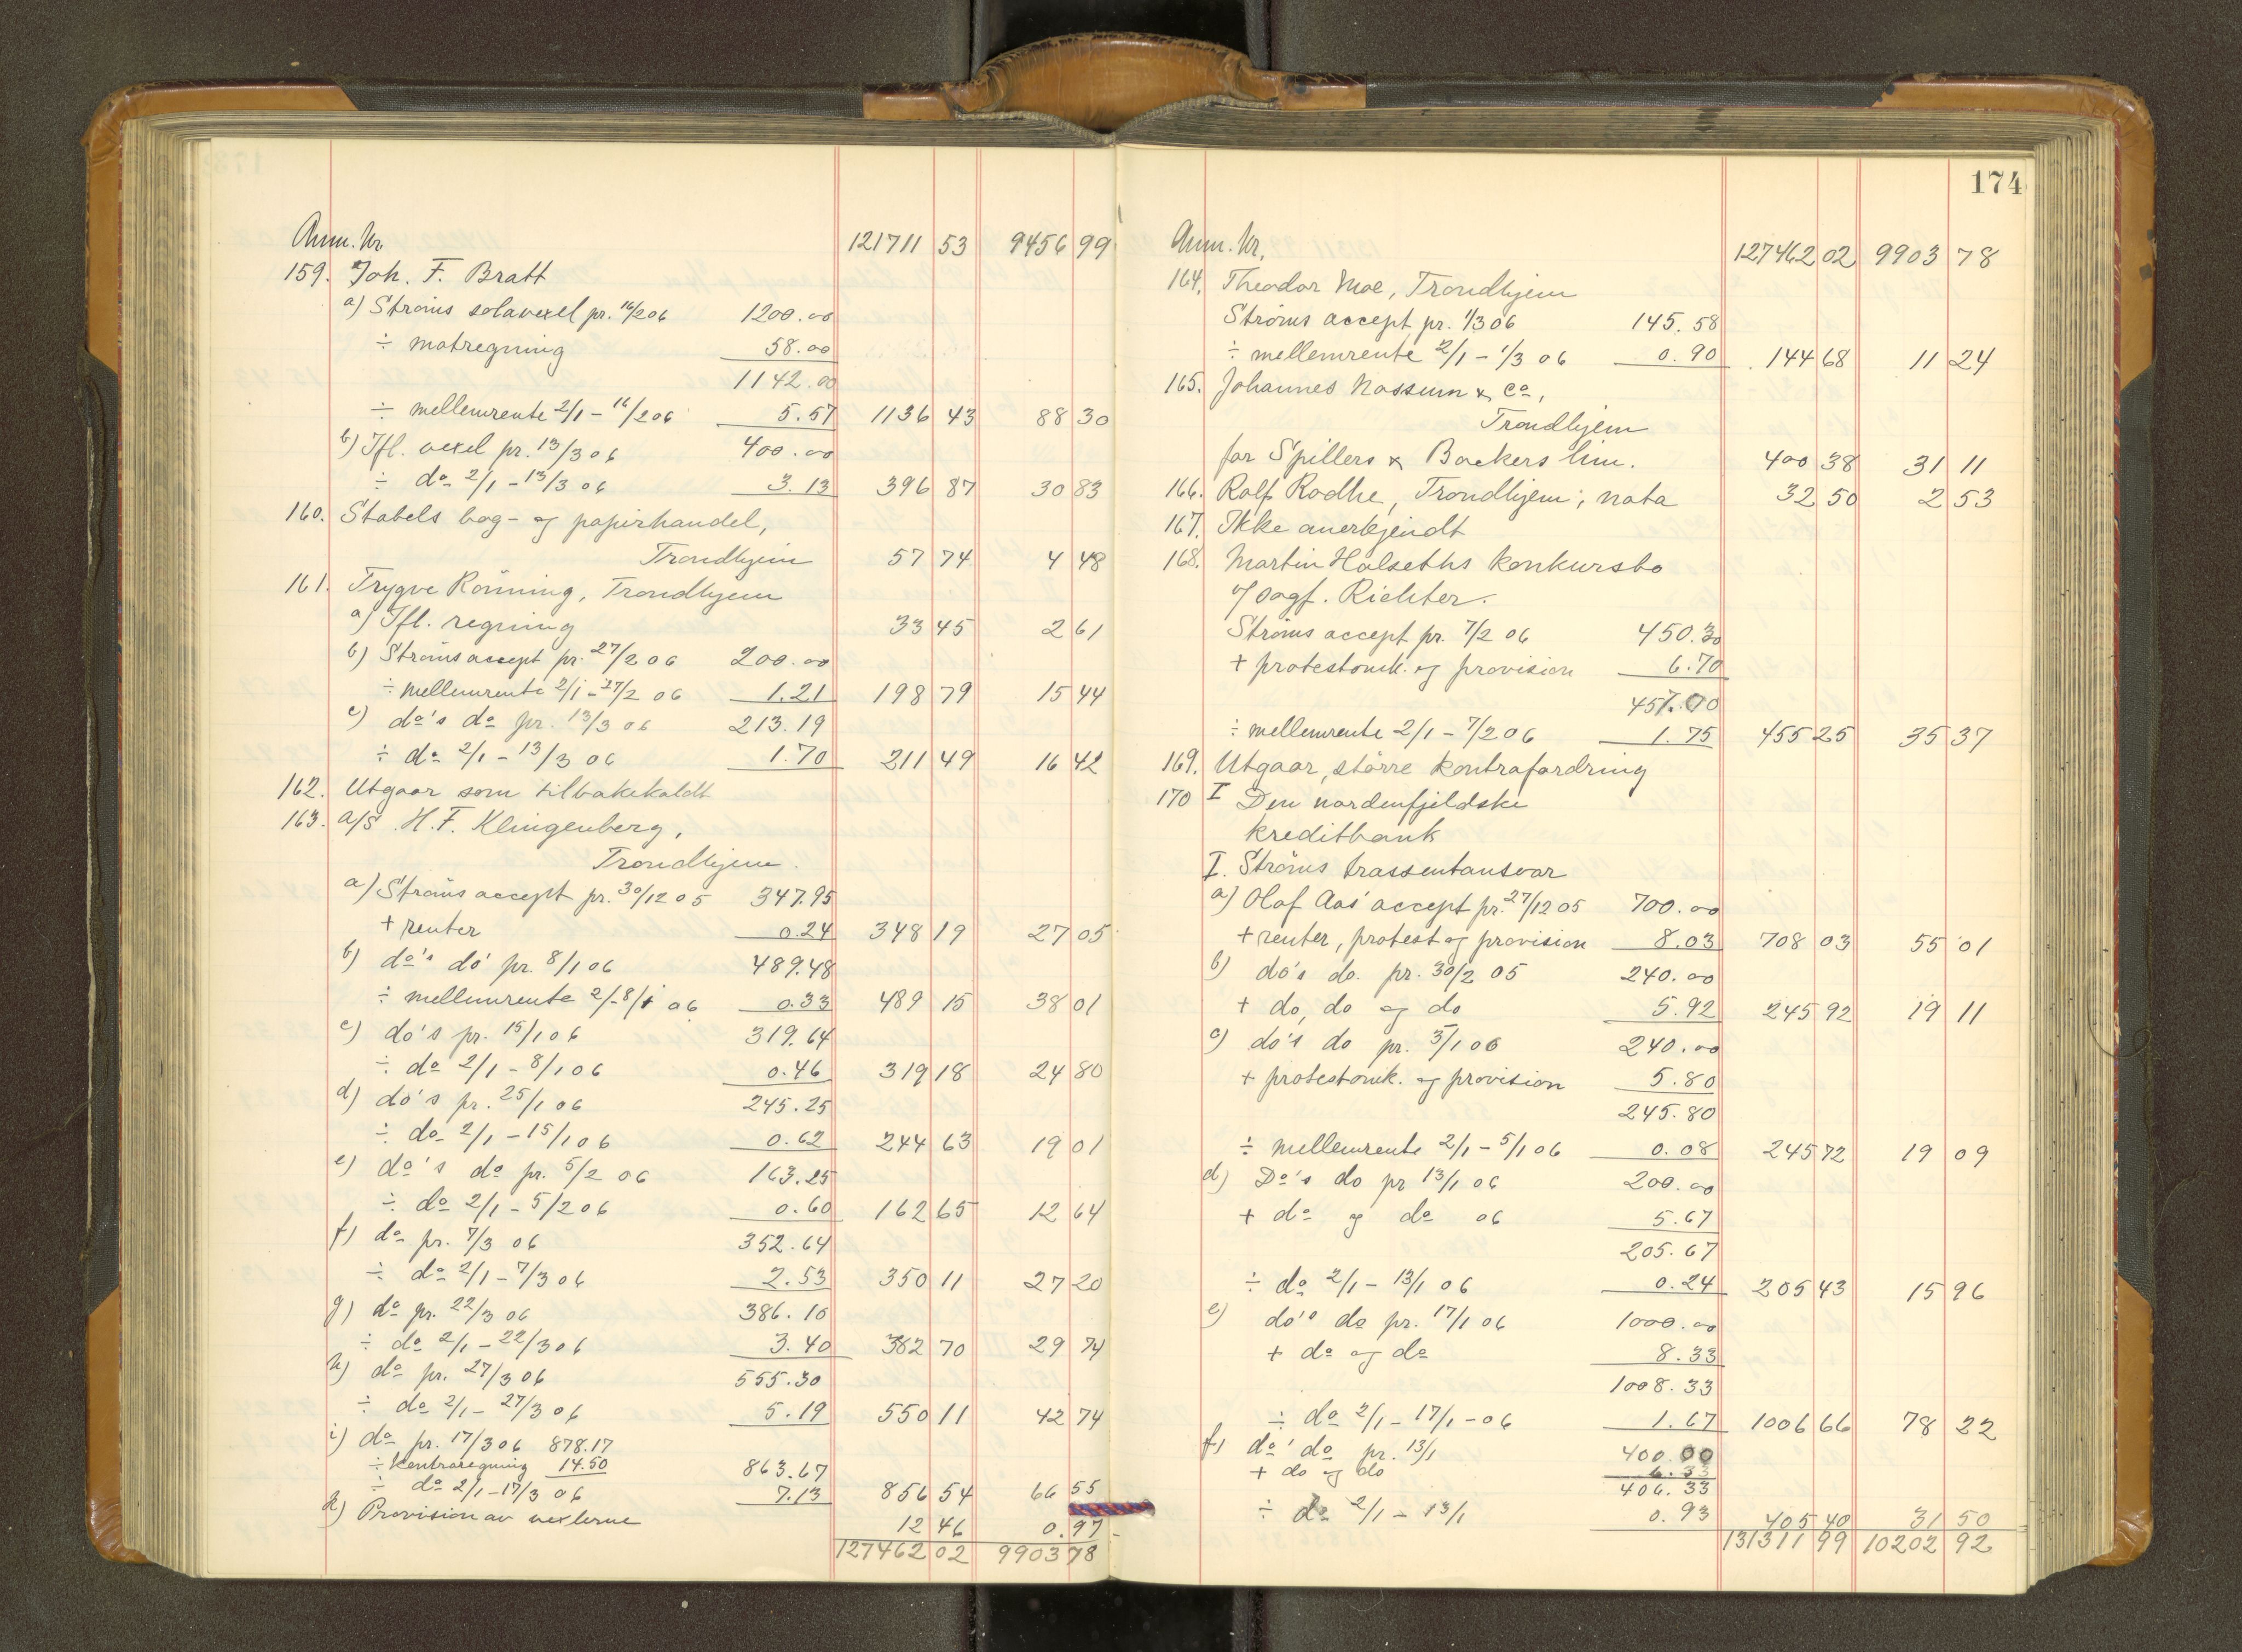 Anm. Nr. 121711 53 9456 99
159. Joh. F. Bratt
a) Ströms solavexel pr. 16/2 06 1200.00
÷ motregning 58.00
1142.00
÷ mellemrente 2/1 - 16/2 06 5.57 1136 43 88 30
b) Ifl. vexel pr. 13/3 06 400.00
÷ do 2/1 - 13/3 06 3.13 396 87 30 83
160. Stabels bog- og papirhandel,
Trondhjem 57 74 4 48
161. Trygve Rönning, Trondhjem
a) Ifl. regning 33 45 2 61
b) Ströms accept pr. 27/2 06 200.00
÷ mellemrente 2/1 - 27/2 06 1.21 198 79 15 44
c) do's do pr. 13/3 06 213.19
÷ do 2/1 - 13/3 06 1.70 211 49 16 42
162. Utgaar som tilbakekaldt
163. A/S H. F. Klingenberg,
Trondhjem.
a) Ströms accept pr. 30/12 05 347.95
+ renter 0.24 348 19 27 05
b) do's do pr. 8/1 06 489.48
÷ mellemrente 2/-8/1 06 0.33 489 15 38 01
c) do's pr. 15/1 06 319.64
÷ do 2/1 - 8/1 06 0.46 319 18 24 80
d) do's pr. 25/1 06 245.25
÷ do 2/1 - 15/1 06 0.62 244 63 19 01
e) do's do pr. 5/2 06 163.25
÷ do 2/1 - 5/2 06 0.60 162 65 12 64
f) do pr. 7/3 06 352.64
÷ do 2/1 - 7/3 06 2.53 350 11 27 20
g) do pr. 22/3 06 386.10
÷ do 2/1 - 22/3 06 3.40 382 70 29 74
h) do pr. 27/3 06 555.30
÷ do 2/1 - 27/3 06 5.19 550 11 42 74
i) do pr. 17/3 06 878.17
÷ Kontraregning 14.50 863.67
÷ do 2/1 - 17/3 06 7.13 856 54 66 55
k) Provision av vexlerne 12 46 0.97
127462 02 9903 78
174
Anm. Nr. 127462 02 9903 78
164. Theodor Moe, Trondhjem
Ströms accept pr. 1/3 06 145.58
÷ mellemrente 2/1 - 1/3 06 0.90 144 68 11 24
165. Johannes Nossum & Co,
Trondhjem
for Spillers & Backers lim. 400 38 31 11
166. Rolf Rodhe, Trondhjem; nota 32 50 2 53
167. Ikke anerkjendt
168. Martin Halseths konkursbo
v/ sagf. Richter.
Ströms accept pr. 7/2 06 450.30
+ protestomk. og provision 6.70
457.00
÷ mellemrente 2/1 - 7/2 06 1.75 455 25 35 37
169. Utgaar, större kontrafordring
170 I Den nordenfjeldske
kreditbank
I. Ströms trassentansvar
a) Olaf Aas' accept pr. 27/12 05 700.00
+ renter, protest og provision 8.03 708 03 55 01
b) do's do. pr. 30/2 05 240.00
+ do, do og do 5.92 245 92 19 11
c) do's do pr. 5/1 06 240.00
+ protestomk. og provision 5.80
245.80
÷ mellemrente 2/1 - 5/1 06 0.08 245 72 19 09
d) Do's do pr 13/1 06 200.00
+ do og do 06 5.67
205.67
÷ do 2/1 - 13/1 06 0.24 205 43 15 96
e) do's do pr. 17/1 06 1000.00
+ do og do 8.33
1008.33
÷ do 2/1 - 17/1 - 06 1.67 1006 66 78 22
f) do' do pr. 13/1 400.00
+ do og do 6.33
406.33
÷ do 2/1 - 13/1 0.93 405 40 31 50
131311 99 10202 92